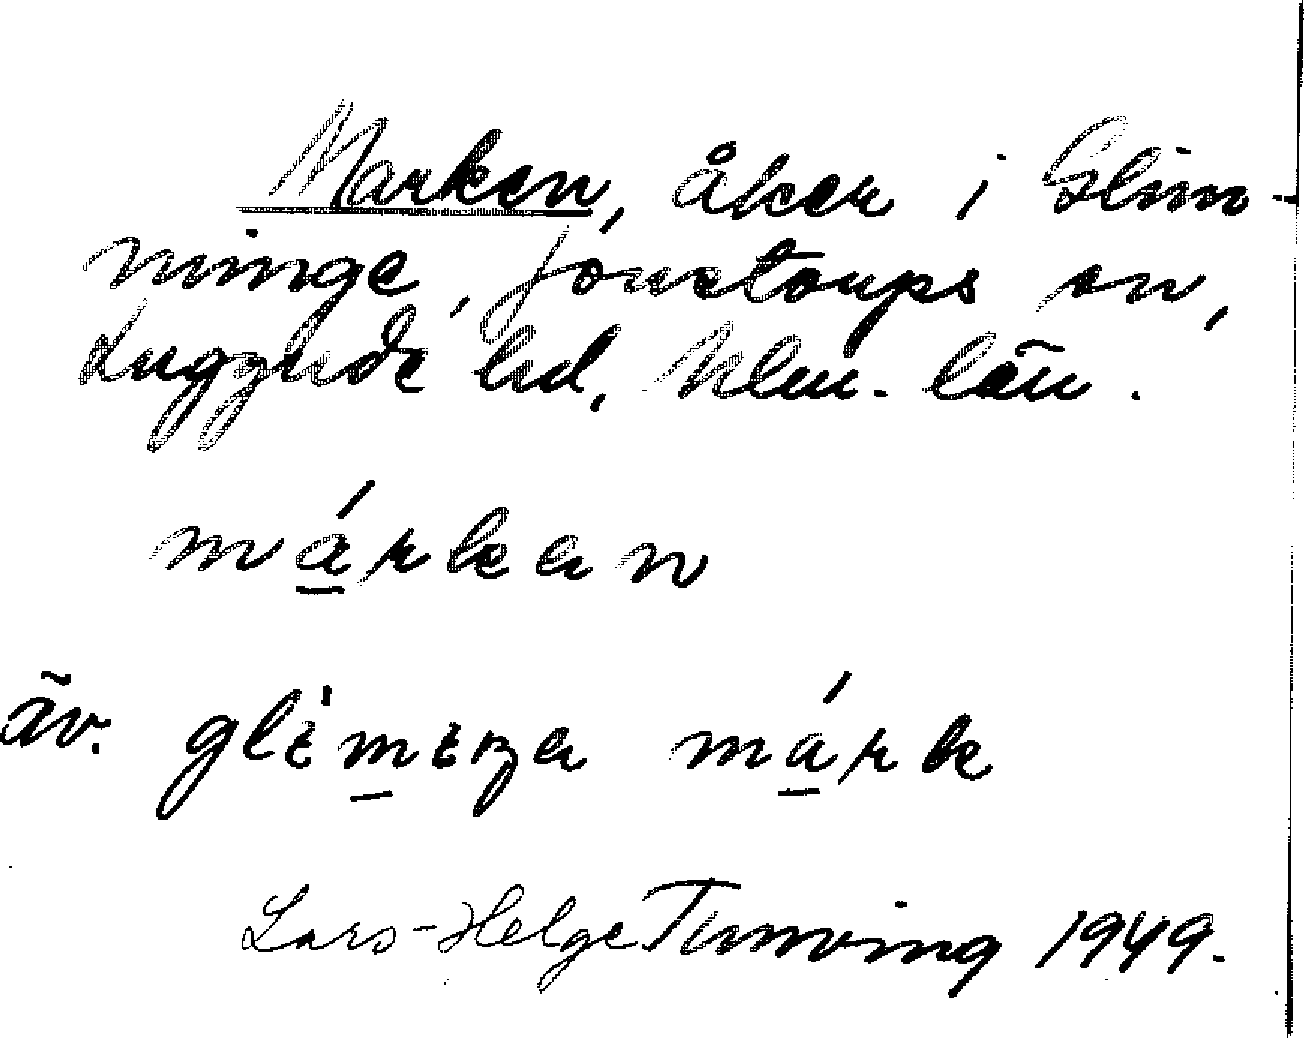 Marken, åker i Glim-
minge, Jonstorps sn,
Luggude hd, Mlm. län.
márkan
äv. glimiŋa márk
Lars-Helge Tunving 1949.